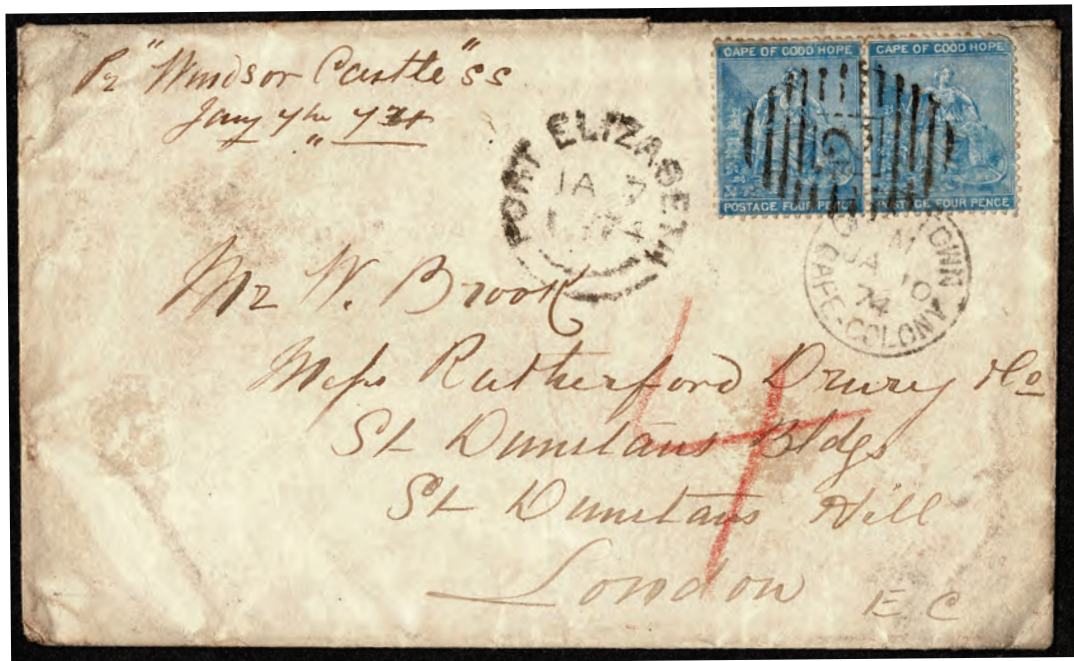 Pr "Windsor Castle" SS
Jany 7th 74
CAPE OF GOOD HOPE
POSTAGE FOUR PENCE
CAPE OF GOOD HOPE
POSTAGE FOUR PENCE
PORT ELIZABETH
JA 7
1874
TOWN
M
JA 10
74
CAPE-COLONY
Mr W. Brook
Messrs Rutherford Drury & Co
St Dunstans Bldgs
St Dunstans Hill
London
E C
4